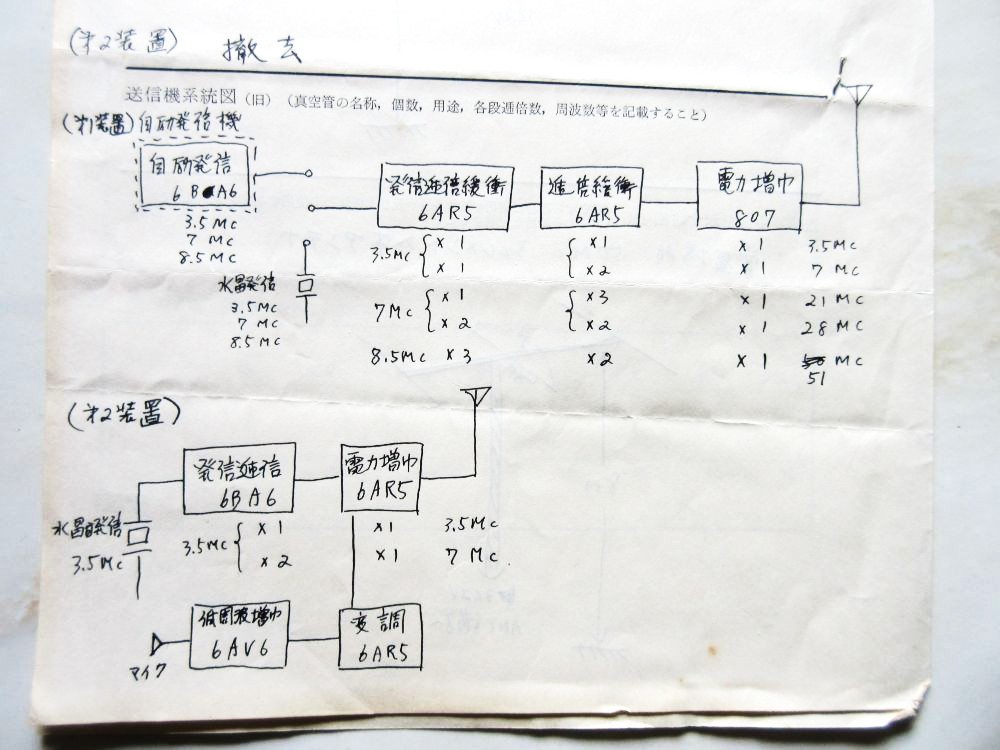 (才2装置) 撤去
送信機系統図(旧)(真空管の名称,個数,用途,各段逓倍数,周波数等を記載すること)
(才1装置)自励発信機
自励発信
6BA6
3.5Mc
7 Mc
8.5Mc
水晶発信
3.5Mc
7 Mc
8.5Mc
発信逓倍緩衝
6AR5
逓倍緩衝
6AR5
電力増巾
807
3.5Mc × ×1 ×1 3.5Mc
×1 ×2 ×1 7 Mc
7Mc ×1 ×3 ×1 21 Mc
×2 ×2 ×1 28 Mc
8.5Mc ×3 ×2 ×1 Mc
51
(才2装置)
発信逓倍
6BA6
電力増巾
6AR5
水晶発信
3.5Mc
3.5Mc ×1 ×1 3.5Mc
×2 ×1 7 Mc.
低周波増巾
6AV6
変調
6AR5
マイク